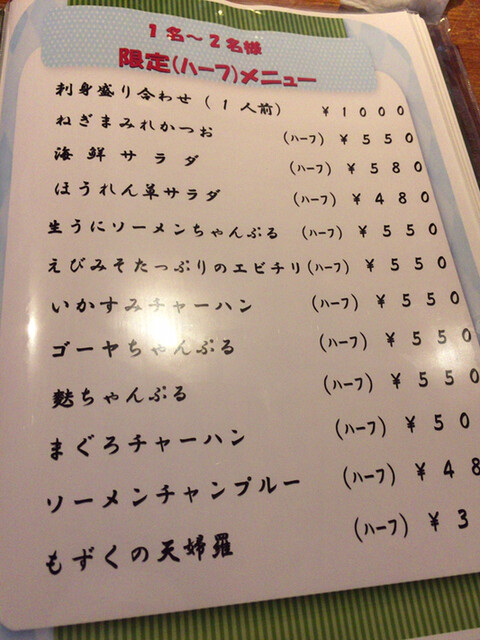 1名～2名様
限定(ハーフ)メニュー
刺身盛り合わせ (1人前) ¥1000
ねぎまみれかつお (ハーフ) ¥550
海鮮サラダ (ハーフ) ¥580
ほうれん草サラダ (ハーフ) ¥480
生うにソーメンちゃんぷる (ハーフ) ¥550
えびみそたっぷりのエビチリ(ハーフ) ¥550
いかすみチャーハン (ハーフ) ¥550
ゴーヤちゃんぷる (ハーフ) ¥550
麩ちゃんぷる (ハーフ) ¥550
まぐろチャーハン (ハーフ) ¥50
ソーメンチャンプルー (ハーフ) ¥48
もずくの天婦羅 (ハーフ) ¥3